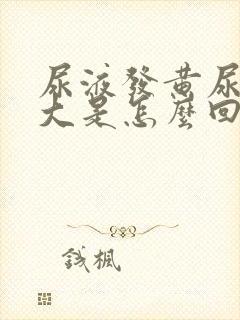 尿液發黃尿
大是怎麼回
錢楓